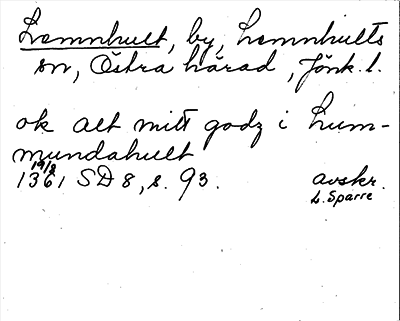 Lemnhult, by, Lemnhults
sn, Östra härad, Jönk. l.
ok alt mitt godz i Lum-
mundahult
19/2
1361 SD 8, s. 93.
avskr.
L. Sparre